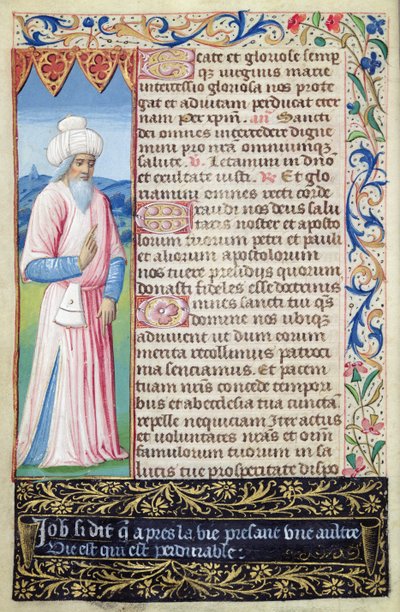 Beate et gloriose semp
q3 virginis marie
intercessio gloriosa nos prote
gat et ad vitam perducat eter
nam Per xp̄m. añ Sancti
dei omnes intercedere digne
mini pro n̄ra omniumq3
salute ℣. Letamini in dn̄o
et exultate iusti ℟. Et glo
riamini omnes recti corde
Exaudi nos deus salu
taris noster et aposto
lorum tuorum petri et pauli
et aliorum apostolorum
nos tuere presidijs quorum
donasti fideles esse doctrinis
Omnes sancti tui q̄s
domine nos ubiq3
adiuvent ut dum eorum
merita recolimus patroci
nia senciamus. Et pacem
tuam n̄ris concede tempori
bus et ab ecclesia tua cuncta
repelle nequiciam Iter actus
et voluntates n̄ras et om̄
famulorum tuorum in sa
lutis tue prosperitate dispo
Job si dit q̄ apres la vie presant vne aultre
Vie est qui est perdurable :